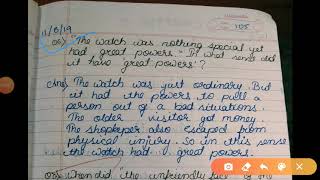 105
11/6/19
Q6) "The watch was nothing special yet
had great powers". In what sense did
it have 'great powers'?
Ans) The watch was just ordinary. But
it had the powers to pull a
person out of a bad situations.
The older visitor got money.
The shopkeeper also escaped from
physical injury. So in this sense
the watch had great powers.
when did the unfriendly